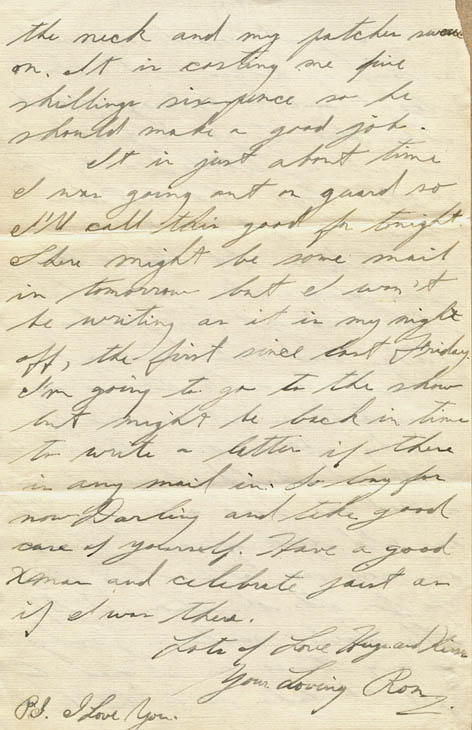 the neck and my patches sewn
on. It is costing me five
shillings sixpence so he
should make a good job.
It is just about time
I was going out on guard so
I'll call this good for tonight.
There might be some mail
in tomorrow but I won't
be writing as it is my night
off, the first since last Friday.
I'm going to go to the show
but might be back in time
to write a letter if there
is any mail in. So long for
now Darling and take good
care of yourself. Have a good
Xmas and celebrate just as
if I was there.
Lots of Love Hugs and Kisses
Your Loving Ron
P.S. I Love You.